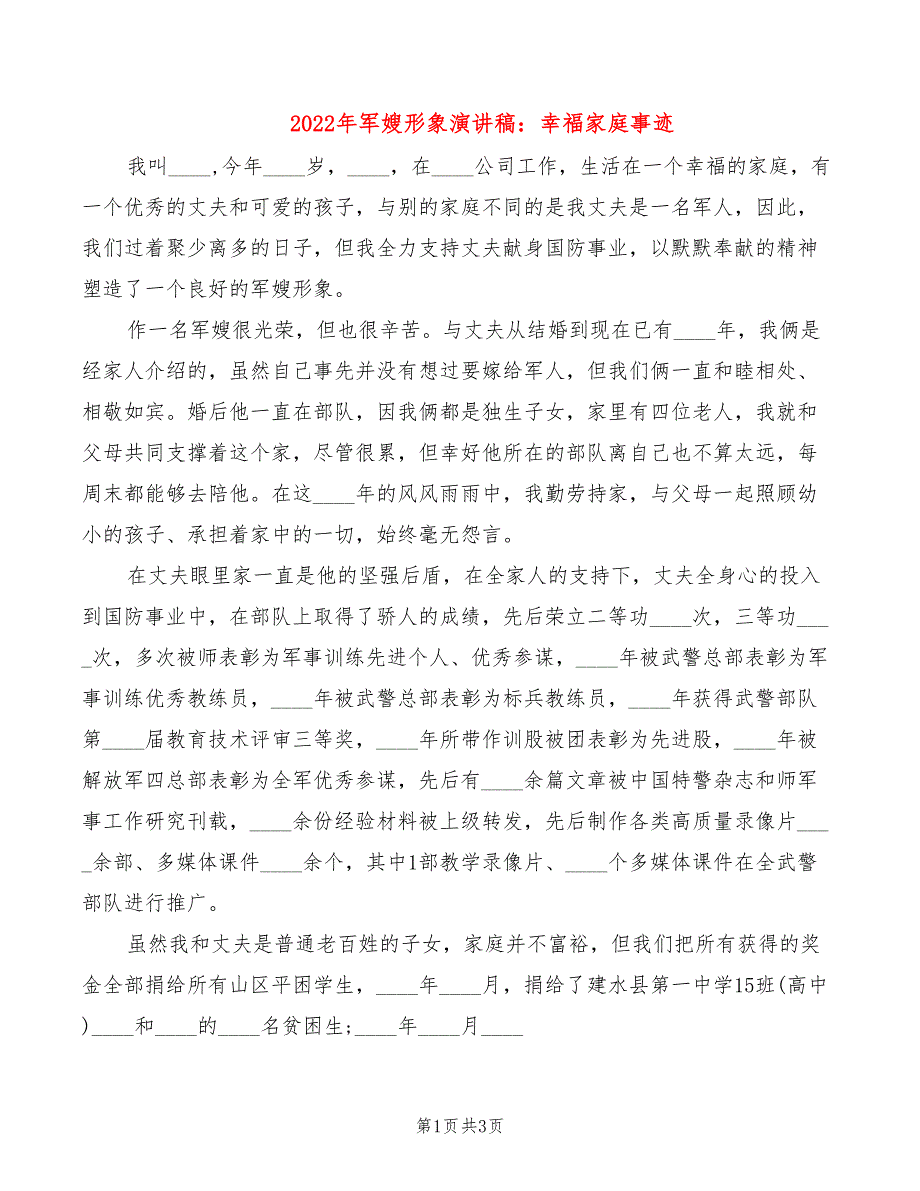 2022年军嫂形象演讲稿：幸福家庭事迹
我叫____,今年____岁，____，在____公司工作，生活在一个幸福的家庭，有
一个优秀的丈夫和可爱的孩子，与别的家庭不同的是我丈夫是一名军人，因此，
我们过着聚少离多的日子，但我全力支持丈夫献身国防事业，以默默奉献的精神
塑造了一个良好的军嫂形象。
作一名军嫂很光荣，但也很辛苦。与丈夫从结婚到现在已有____年，我俩是
经家人介绍的，虽然自己事先并没有想过要嫁给军人，但我们俩一直和睦相处、
相敬如宾。婚后他一直在部队，因我俩都是独生子女，家里有四位老人，我就和
父母共同支撑着这个家，尽管很累，但幸好他所在的部队离自己也不算太远，每
周末都能够去陪他。在这____年的风风雨雨中，我勤劳持家，与父母一起照顾幼
小的孩子、承担着家中的一切，始终毫无怨言。
在丈夫眼里家一直是他的坚强后盾，在全家人的支持下，丈夫全身心的投入
到国防事业中，在部队上取得了骄人的成绩，先后荣立二等功____次，三等功___
_次，多次被师表彰为军事训练先进个人、优秀参谋，____年被武警总部表彰为军
事训练优秀教练员，____年被武警总部表彰为标兵教练员，____年获得武警部队
第____届教育技术评审三等奖，____年所带作训股被团表彰为先进股，____年被
解放军四总部表彰为全军优秀参谋，先后有____余篇文章被中国特警杂志和师军
事工作研究刊载，____余份经验材料被上级转发，先后制作各类高质量录像片___
_余部、多媒体课件____余个，其中1部教学录像片、____个多媒体课件在全武警
部队进行推广。
虽然我和丈夫是普通老百姓的子女，家庭并不富裕，但我们把所有获得的奖
金全部捐给所有山区平困学生，____年____月，捐给了建水县第一中学15班(高中
)____和____的____名贫困生;____年____月____
第1页共3页